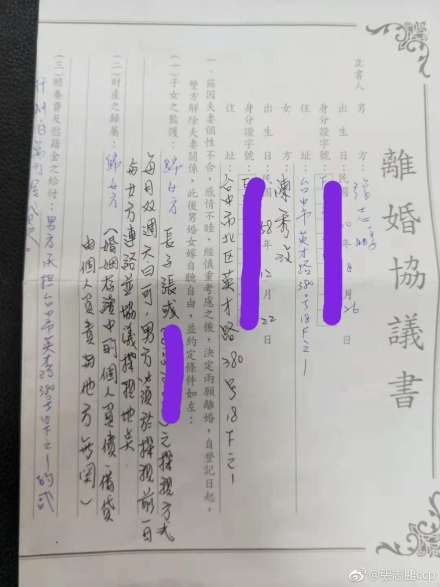 離婚協議書
立書人 男 方：張志鵬
出生日：民國 年8月26日
身分證字號：
住 址：台中市英才路380号18F之1
女 方：陳秀
出生日：民國58年12月22日
身分證字號：
住 址：台中市北區英才路380号18F之1
一、茲因夫妻個性不合，感情不睦，經慎重考慮之後，決定兩願離婚，自登記日起，
雙方解除夫妻關係，此後男婚女嫁自聽自由，並約定條件如左：
(一)子女之監護：歸女方 長子張彧 之探視方式
每月双週天白可，男方必須於探視前一日
与女方連絡並協議探視地点
(二)財產之歸屬：歸女方（婚姻存續中的個人負債、借貸
由個人負責与他方無関）
(三)贍養費及慰藉金之給付：男方承担台中市英才路380号18F之1的
@张志鹏ccp